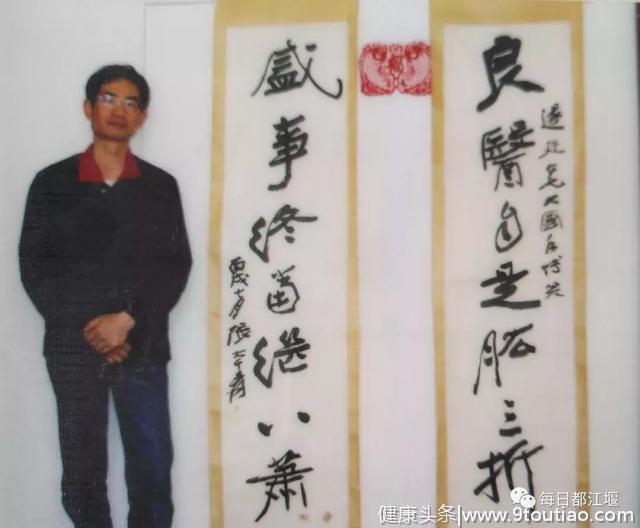 良醫自是肱三折
盛事終當繼八蕭
張大千爰
每日都江堰
健康头条/www.9toutiao.com